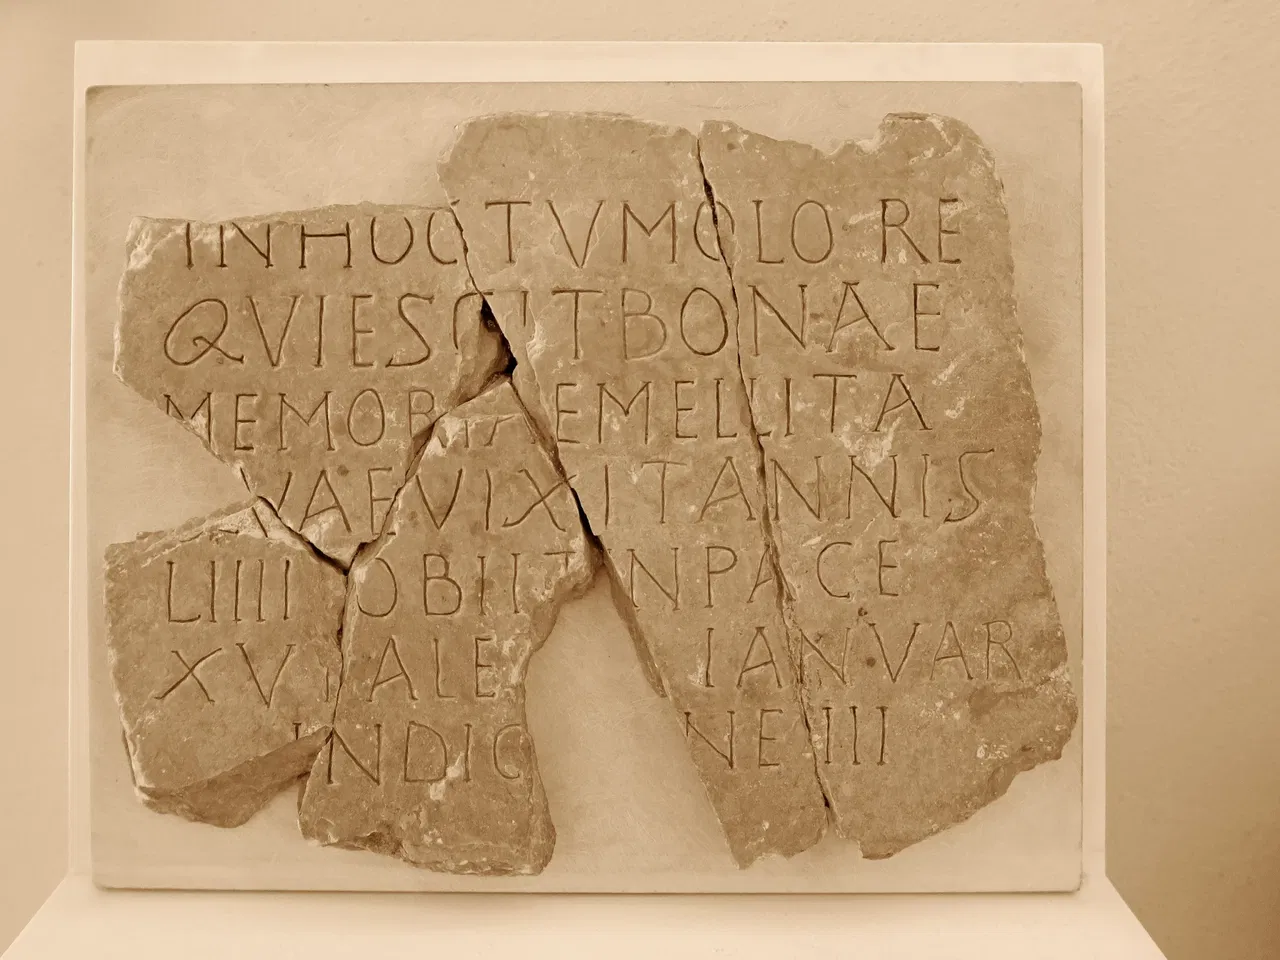 IN HUOC TVMOLO RE
QVIESCIT BONAE
MEMORIAE MELLITA
VAE VIXIT ANNIS
LIIII OBIIT IN PACE
XV IANVAR
NE III